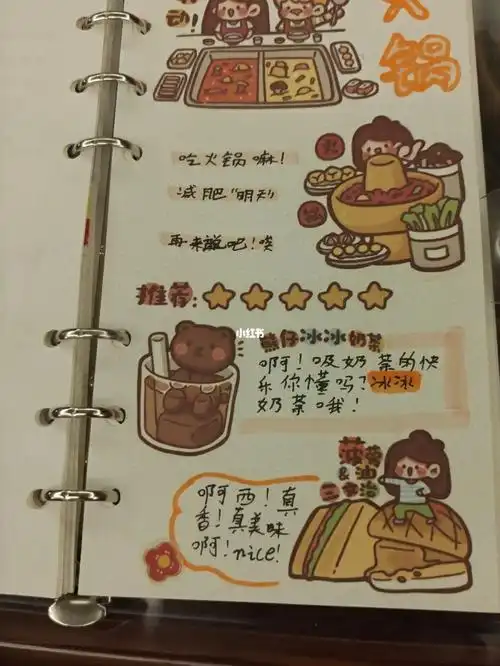 动!
火
锅
吃火锅嘛!
火
减肥"明天"
锅
再来说吧!唉
推荐:
小红书
熊仔冰冰奶茶
啊!吸奶茶的快
乐你懂吗?冰冰
奶茶哦!
菠萝
&油
三文治
啊西!真
香!真美味
啊!nice!